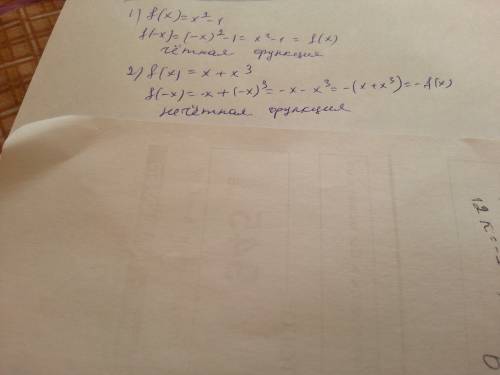 1) f(x)=x²-1
f(-x)=(-x)²-1=x²-1=f(x)
чётная функция
2) f(x)=x+x³
f(-x)=-x+(-x)³=-x-x³=-(x+x³)=-f(x)
нечётная функция